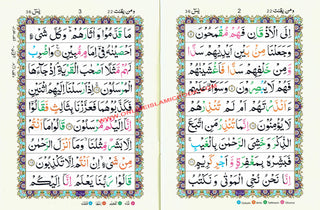 ومن يقنت ٢٢ 2 يٰسٓ ٣٦
اِلَى الْاَذْقَانِ فَهُمْ مُّقْمَحُوْنَ
وَجَعَلْنَا مِنْۢ بَيْنِ اَيْدِيْهِمْ سَدًّا
وَّمِنْ خَلْفِهِمْ سَدًّا فَاَغْشَيْنٰهُمْ
فَهُمْ لَا يُبْصِرُوْنَ وَسَوَآءٌ عَلَيْهِمْ
ءَاَنْذَرْتَهُمْ اَمْ لَمْ تُنْذِرْهُمْ
لَا يُؤْمِنُوْنَ اِنَّمَا تُنْذِرُ مَنِ اتَّبَعَ
الذِّكْرَ وَخَشِيَ الرَّحْمٰنَ بِالْغَيْبِ
فَبَشِّرْهُ بِمَغْفِرَةٍ وَّاَجْرٍ كَرِيْمٍ
اِنَّا نَحْنُ نُحْيِ الْمَوْتٰى وَنَكْتُبُ
ومن يقنت ٢٢ 3 يٰسٓ ٣٦
مَا قَدَّمُوْا وَاٰثَارَهُمْ وَكُلَّ شَيْءٍ
اَحْصَيْنٰهُ فِيْٓ اِمَامٍ مُّبِيْنٍ وَاضْرِبْ
لَهُمْ مَّثَلًا اَصْحٰبَ الْقَرْيَةِ اِذْ جَآءَهَا
الْمُرْسَلُوْنَ اِذْ اَرْسَلْنَآ اِلَيْهِمُ اثْنَيْنِ
فَكَذَّبُوْهُمَا فَعَزَّزْنَا بِثَالِثٍ فَقَالُوْٓا
اِنَّآ اِلَيْكُمْ مُّرْسَلُوْنَ قَالُوْا مَآ اَنْتُمْ
اِلَّا بَشَرٌ مِّثْلُنَا وَمَآ اَنْزَلَ الرَّحْمٰنُ
مِنْ شَيْءٍ اِنْ اَنْتُمْ اِلَّا تَكْذِبُوْنَ
قَالُوْا رَبُّنَا يَعْلَمُ اِنَّآ اِلَيْكُمْ